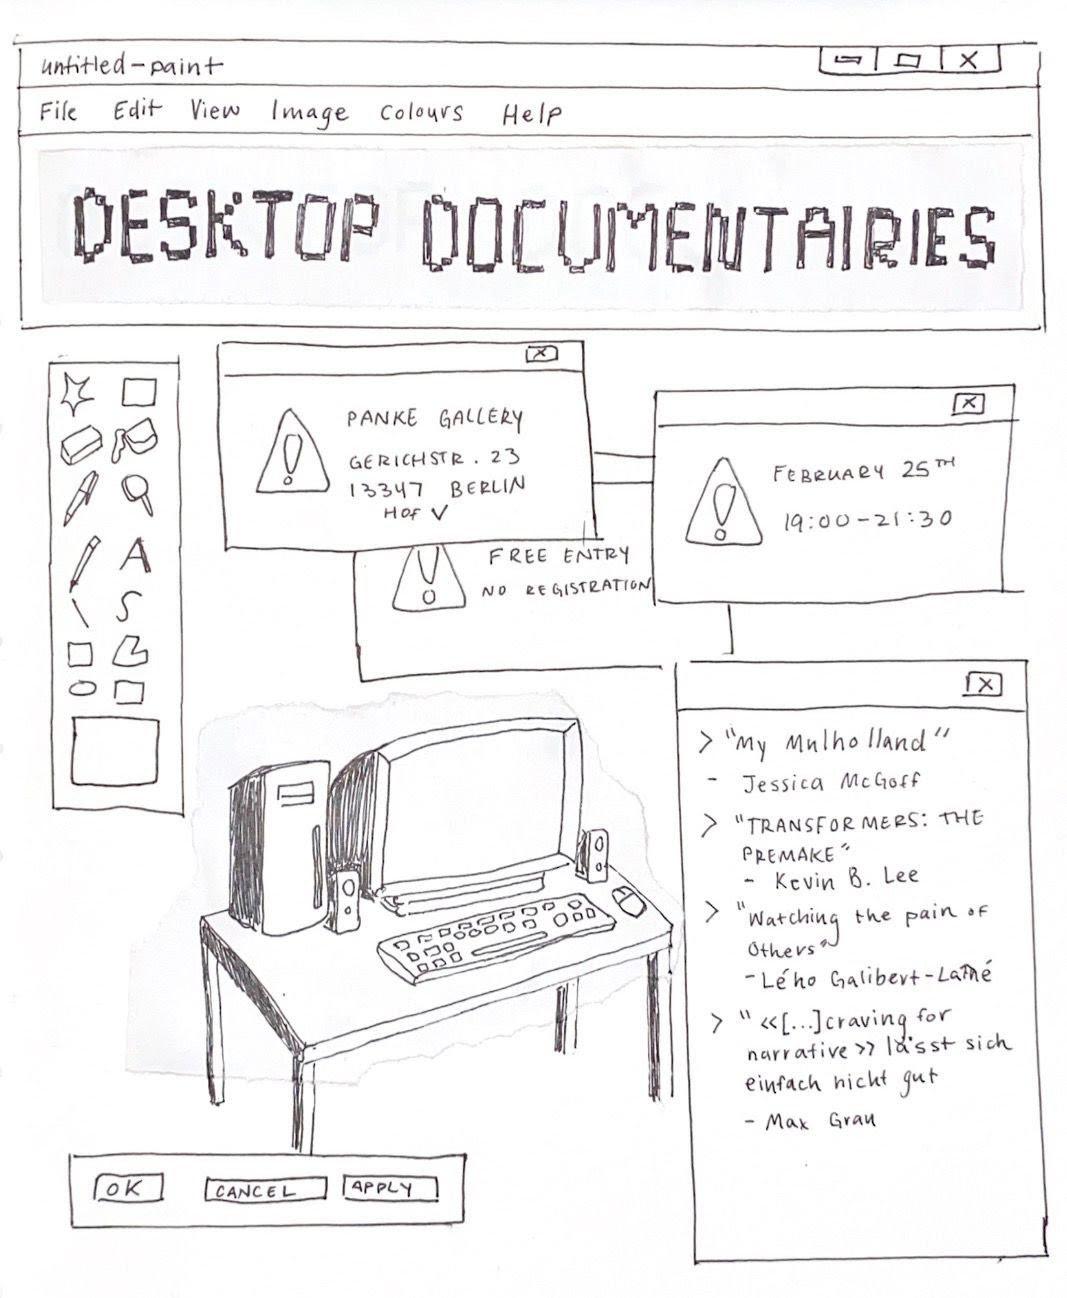 untitled-paint
File Edit View Image Colours Help
DESKTOP DOCUMENTAIRIES
PANKE GALLERY
GERICHSTR. 23
13347 BERLIN
HOF V
FEBRUARY 25TH
19:00-21:30
FREE ENTRY
NO REGISTRATION
A
> "My Mulholland"
- Jessica McGoff
> "TRANSFORMERS: THE
PREMAKE"
- Kevin B. Lee
> "Watching the pain of
Others"
- Lého Galibert-Laîné
> "<<[...]craving for
narrative>> lässt sich
einfach nicht gut
- Max Grau
OK CANCEL APPLY